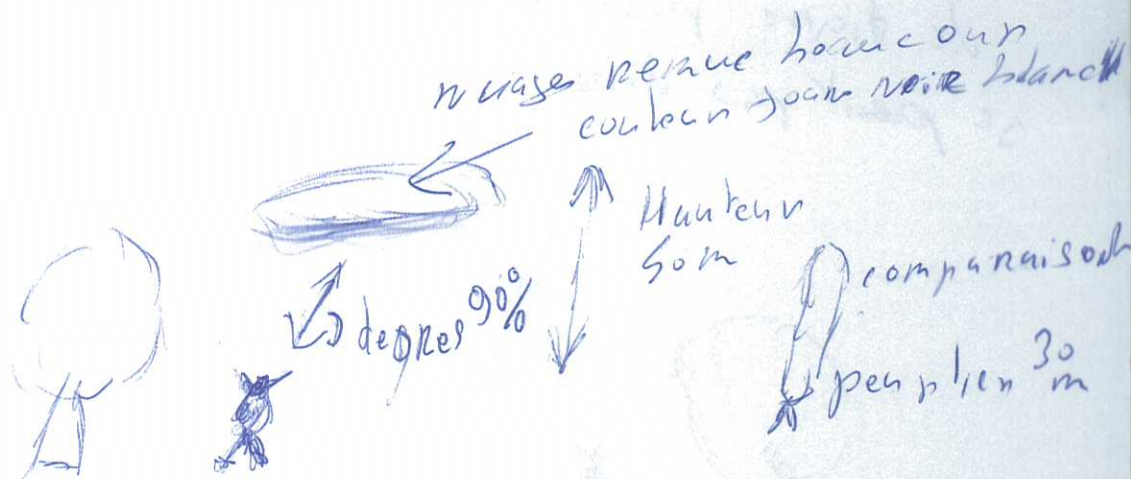 nuages remue beaucoup
couleur jaune noire blanc
Hauteur
50m
degres 90%
comparaison
peuplier 30
m